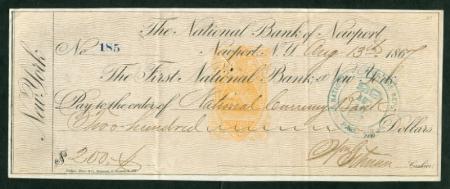 The National Bank of Newport
No. 185
Newport, N.Y. Aug 13th 1867
The First National Bank, New York
Pay to the order of National Currency Bank
Two hundred Dollars
$ 200.
Cashier
New York